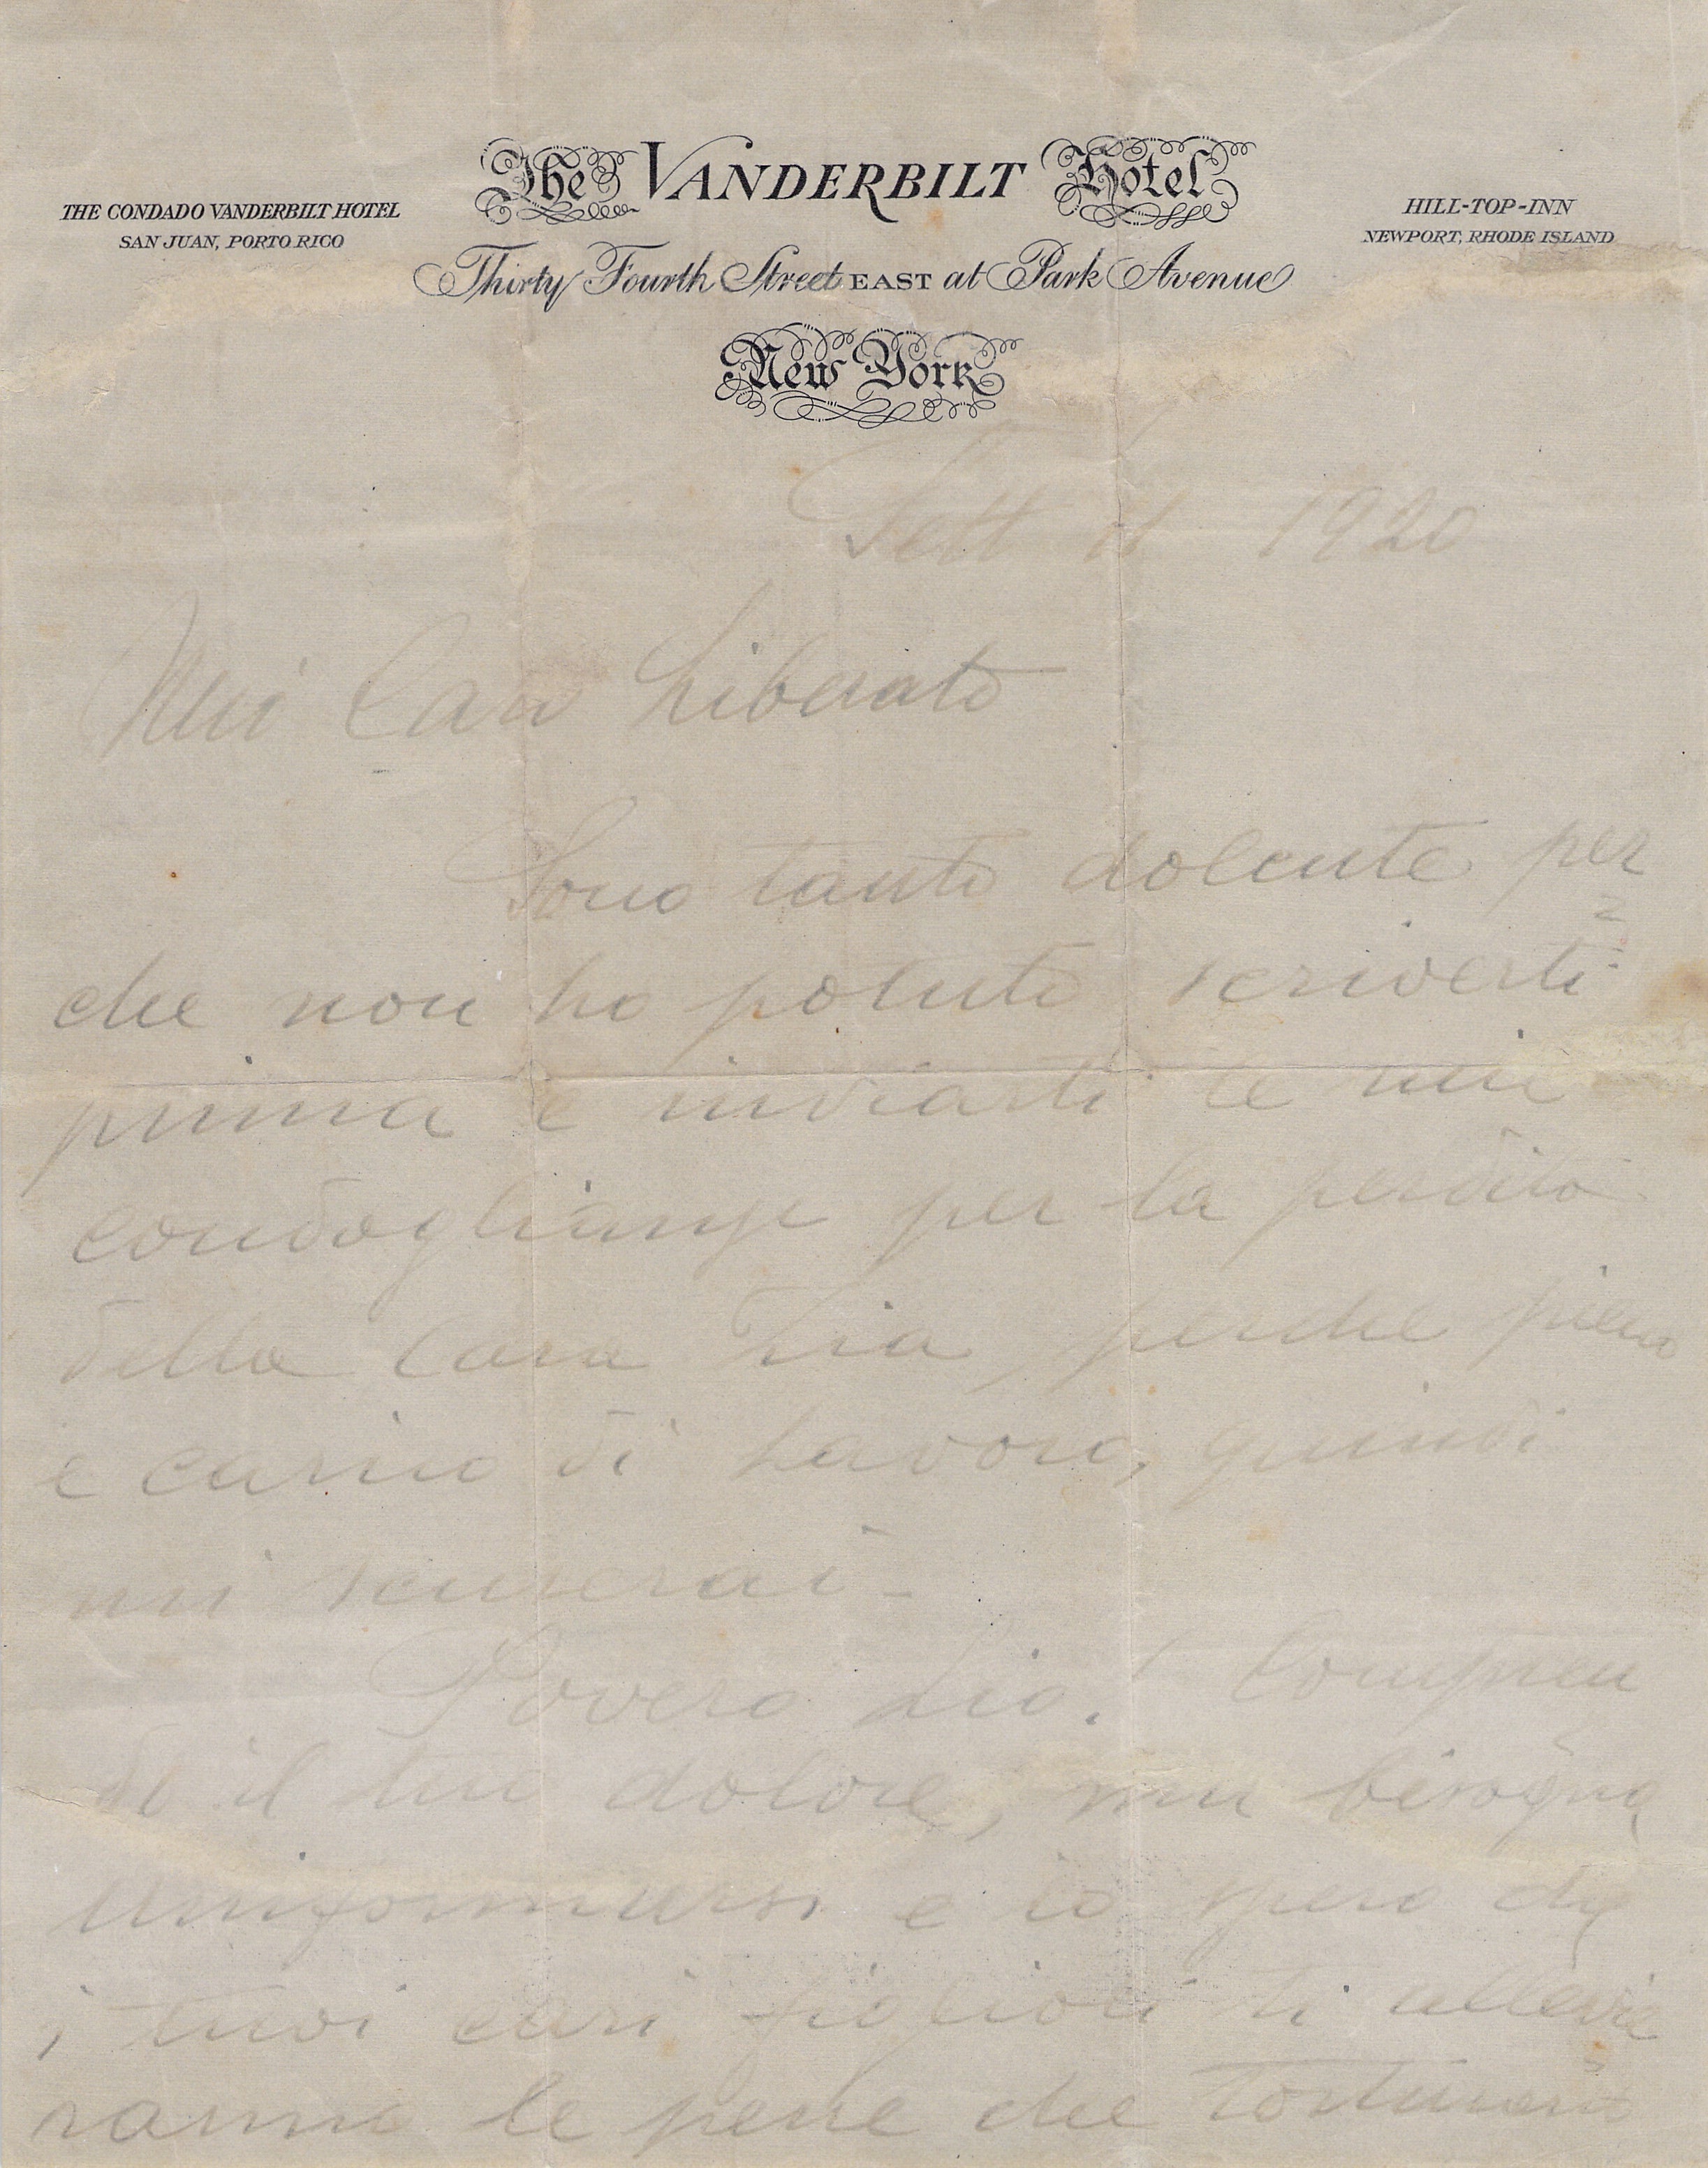 The VANDERBILT Hotel
THE CONDADO VANDERBILT HOTEL
SAN JUAN, PORTO RICO
HILL-TOP-INN
NEWPORT, RHODE ISLAND
Thirty Fourth Street EAST at Park Avenue
New York
Sett 11 1920
Mui Caro Liberato
Sono tanto dolente per
che non ho potuto scriverti
prima e inviarti le mie
condoglianze per la perdita
della Cara Zia perche pieno
e carico di Lavoro, quindi
mi scuserai -
Povero Zio! Compren
do il tuo dolore, ma bisogna
uniformarsi e io spero che
i tuoi cari figlioli ti allevie
ranno le pene che